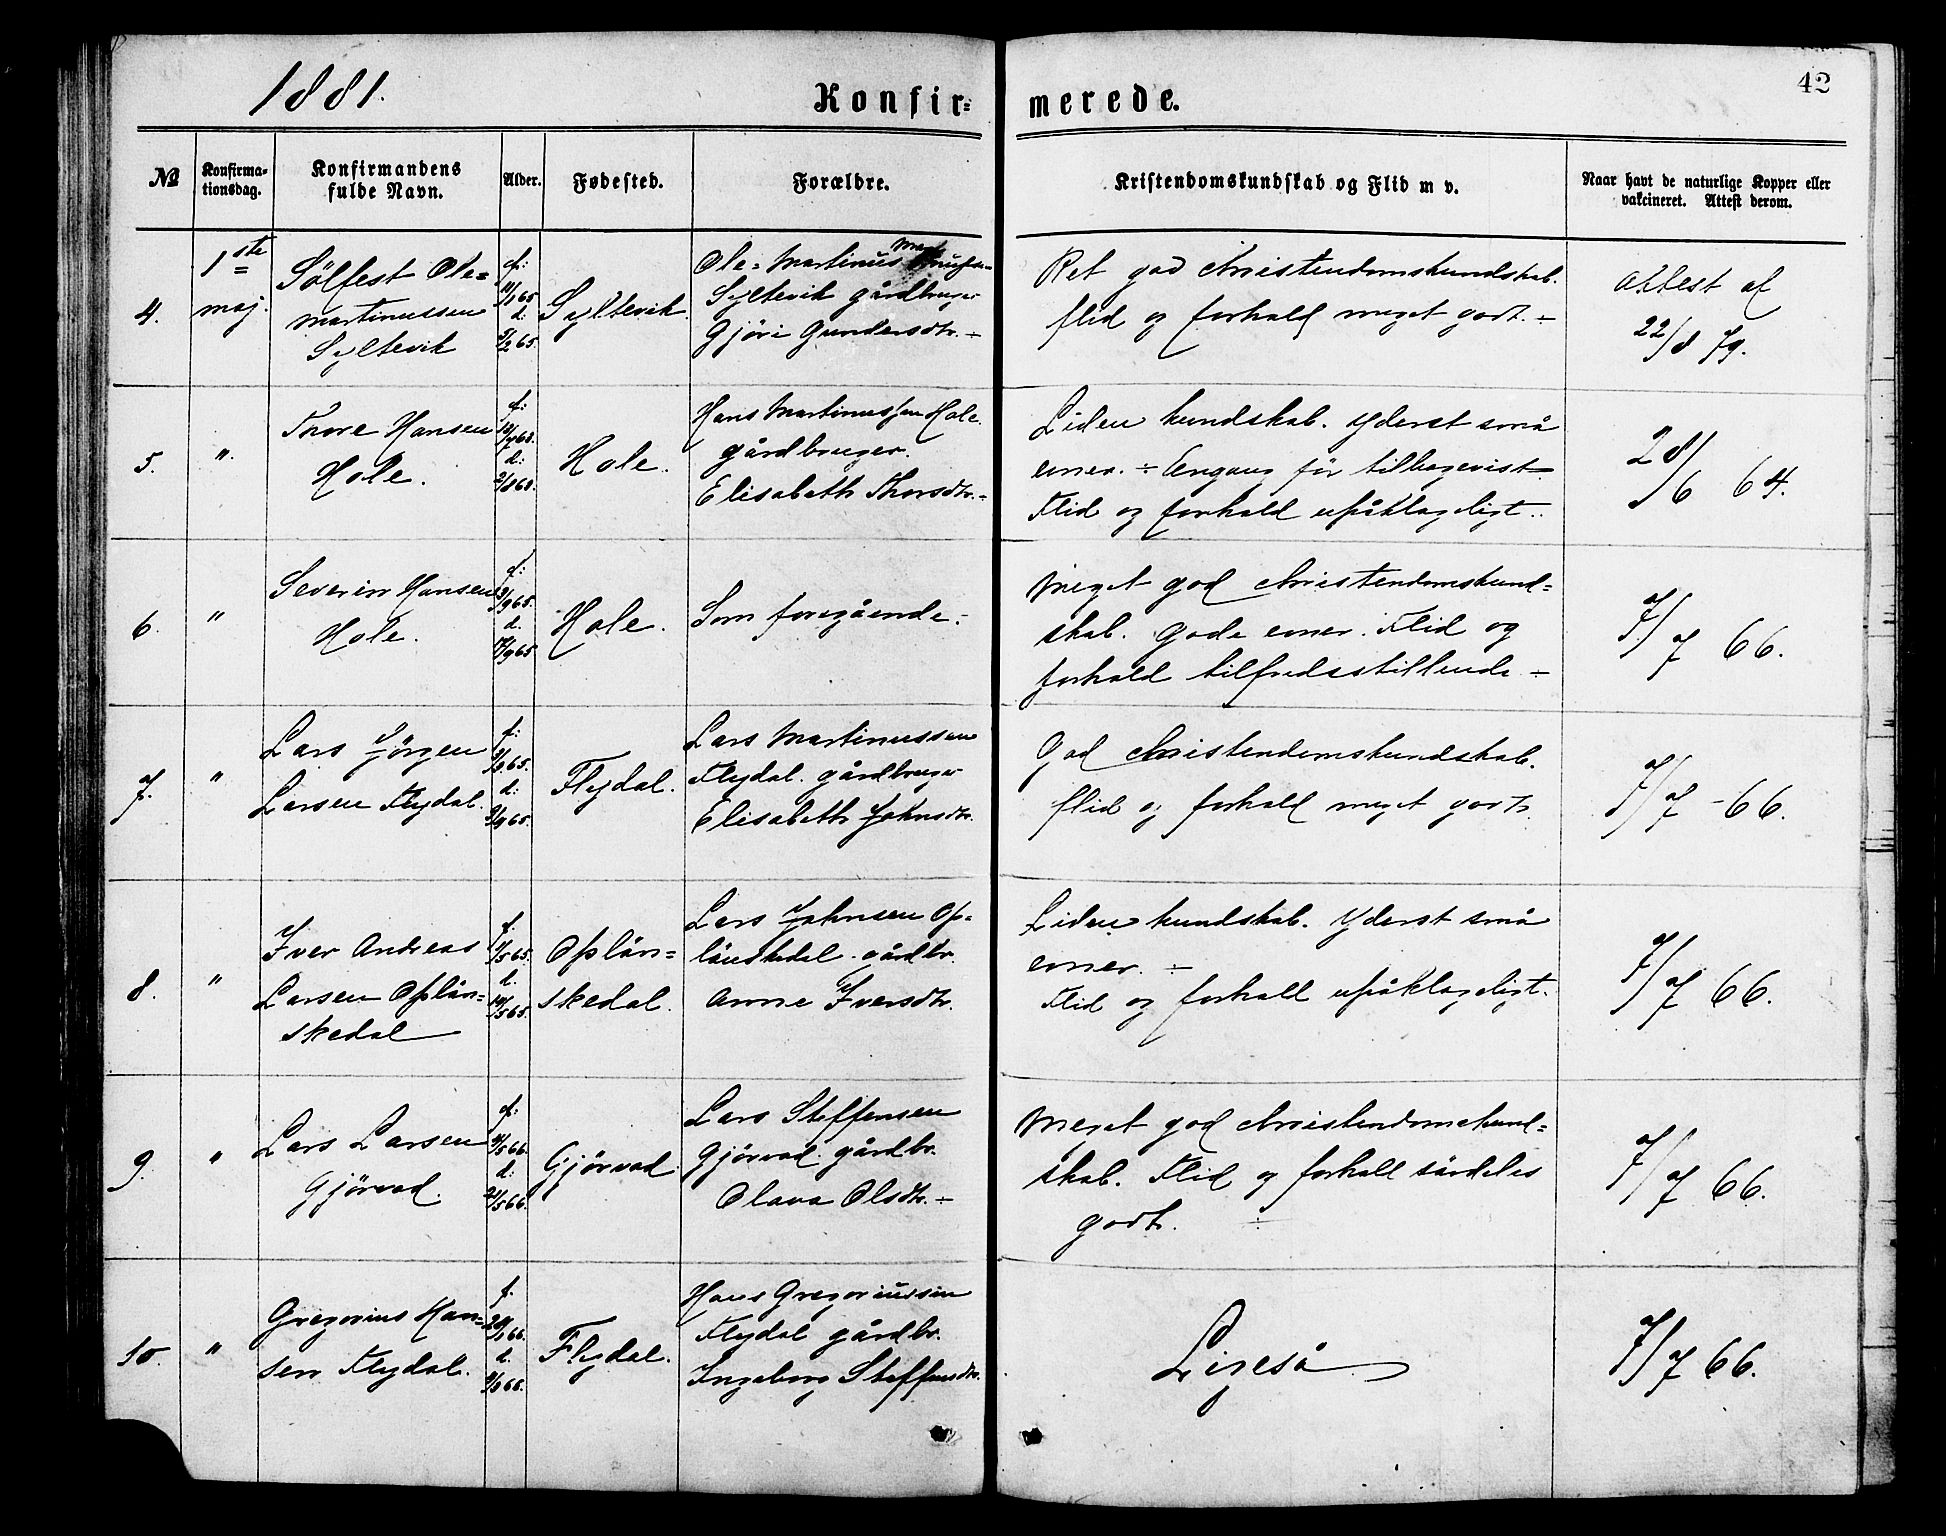 1881.
Konfir=
merede.
42
№
Konfirma-
tionsdag.
Konfirmandens
fulde Navn.
Alder.
Fødested.
Forældre.
Kristendomskundskab og Flid m v.
Naar havt de naturlige Kopper eller
vakcineret. Attest derom.
4.
1ste
maj.
Sölfest Ole=
martinussen
Syltevik
f:
d:
2/2 65.
Syltevik
Ole=Martinus
Syltevik gårdbruger
Gjöri Gundersdtr. ÷
Ret god christendomskundskab.
flid og forhold meget godt. ÷
Attest af
22/8 79.
5.
"
Thore Hansen
Hole.
f:
d:
Hole.
Hans Martinussen Hole.
gårdbruger.
Elisabeth Thorsdtr. ÷
Liden kundskab. Yderst små
evner. ÷ Engang för tilbagevist
Flid og forhold upåklageligt.
28/6 64.
6.
"
Severin Hansen
Hole.
f:
d.
Hole.
Som foregående.
Meget god christendomskund=
skab. gode evner. Flid og
forhold tilfredsstillende ÷
7/7 66.
7.
"
Lars Jörgen
Larsen Flydal.
f:
d:
Flydal.
Lars Martinussen
Flydal. gårdbruger
Elisabeth Johnsdtr.
God christendomskundskab.
flid og forhold meget godt.
7/7 - 66.
8.
"
Iver Andreas
Larsen Oplän=
skedal
f.
d.
Oplän=
skedal.
Lars Johnsen Op=
länskedal. gårdbr.
Anne Iversdtr.
Liden kundskab. Yderst små
evner. ÷
Flid og forhold upåklageligt.
7/7 66.
9.
"
Lars Larsen
Gjörvad.
f:
d:
Gjörvad
Lars Steffensen
Gjörvad. gårdbr.
Olava Olsdtr. ÷
Meget god christendomskund=
skab. Flid og forhold särdeles
godt. ÷
7/7 66.
10.
"
Gregorius Han=
sen Flydal.
f.
d.
Flydal.
Hans Gregoriussen
Flydal gårdbr.
Ingeborg Steffensdtr.
Ligeså
7/7 66.